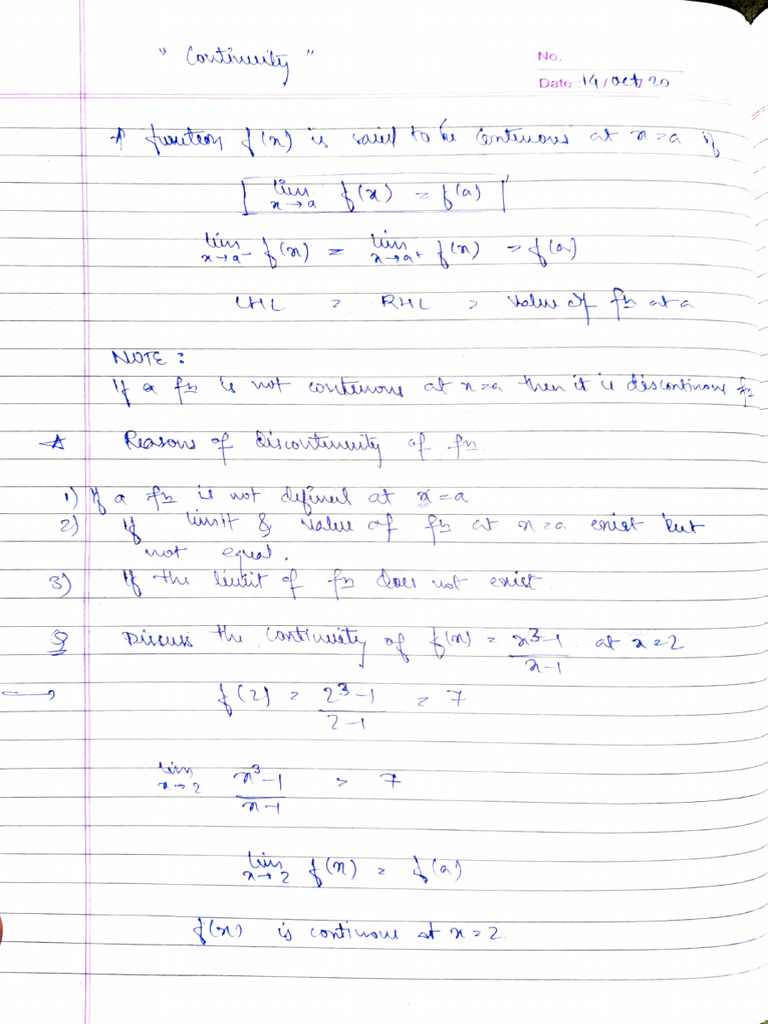 " Continuity "
No.
Date 14/oct/20
A function f(x) is said to be continuous at x=a if
lim x→a f(x) = f(a)
lim x→a⁻ f(x) = lim x→a⁺ f(x) = f(a)
LHL = RHL = Value of fn at a
NOTE :
If a fn is not continuous at x=a then it is discontinous fn
☆ Reasons of discontinuity of fn.
1) If a fn is not defined at x=a
2) If limit & value of fn at x=a exist but
not equal.
3) If the limit of fn does not exist.
Q Discuss the continuity of f(x) = x³-1/x-1 at x=2
→ f(2) = 2³-1/2-1 = 7
lim x→2 x³-1/x-1 = 7
lim x→2 f(x) = f(a)
f(x) is continous at x=2.